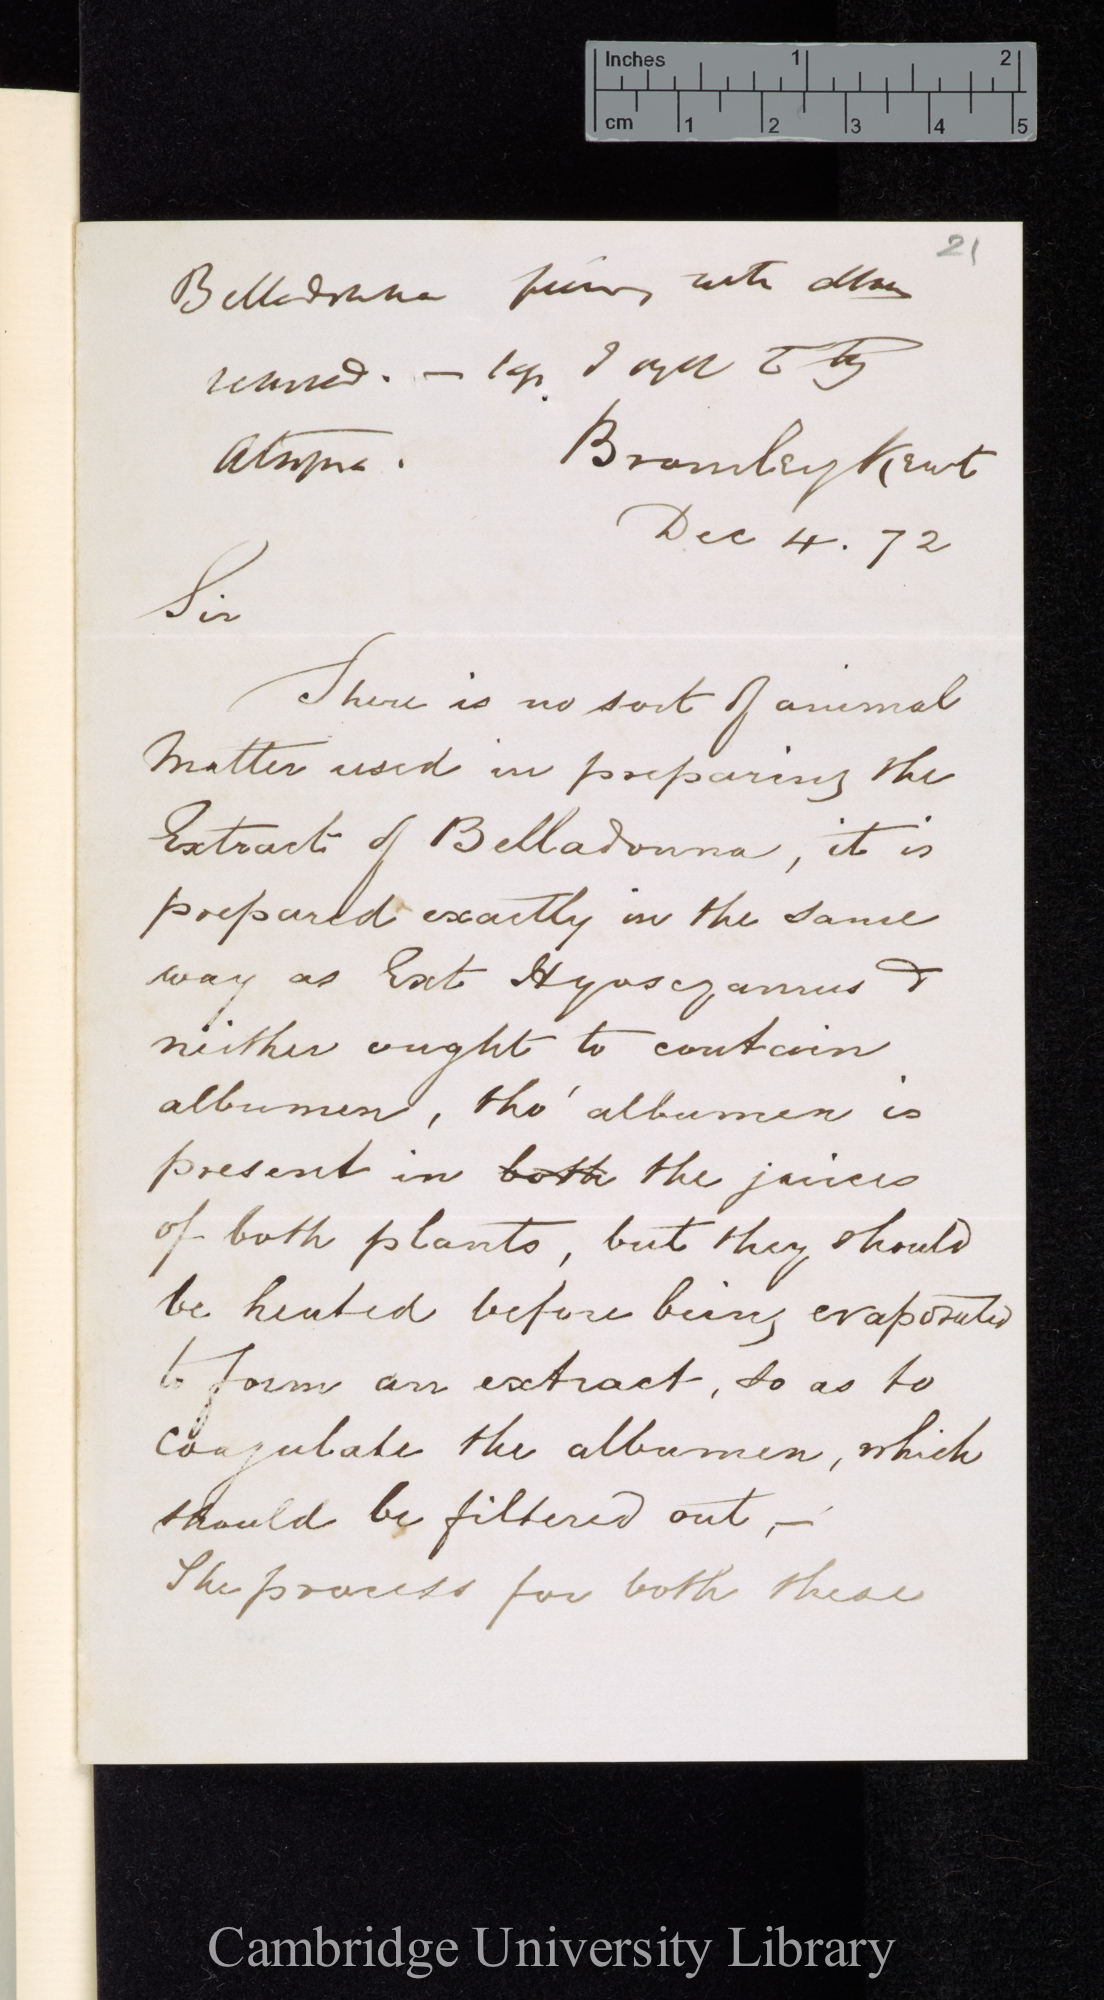 Inches 1 2
cm 1 2 3 4 5
21
Belladonna with
removed. — I ought to try
Atropia.
Bromley Kent
Dec 4. 72
Sir
There is no sort of animal
Matter used in preparing the
Extract of Belladonna, it is
prepared exactly in the same
way as Ext Hyoscyamus &
neither ought to contain
albumen, tho' albumen is
present in both the juices
of both plants, but they should
be heated before being evaporated
to form an extract, so as to
coagulate the albumen, which
should be filtered out, —
The process for both these
Cambridge University Library